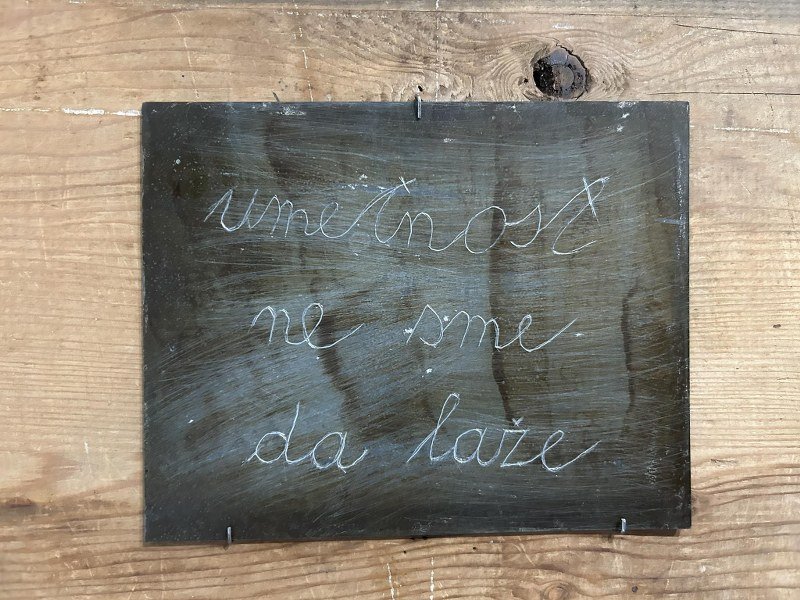 umetnost
ne sme
da laže